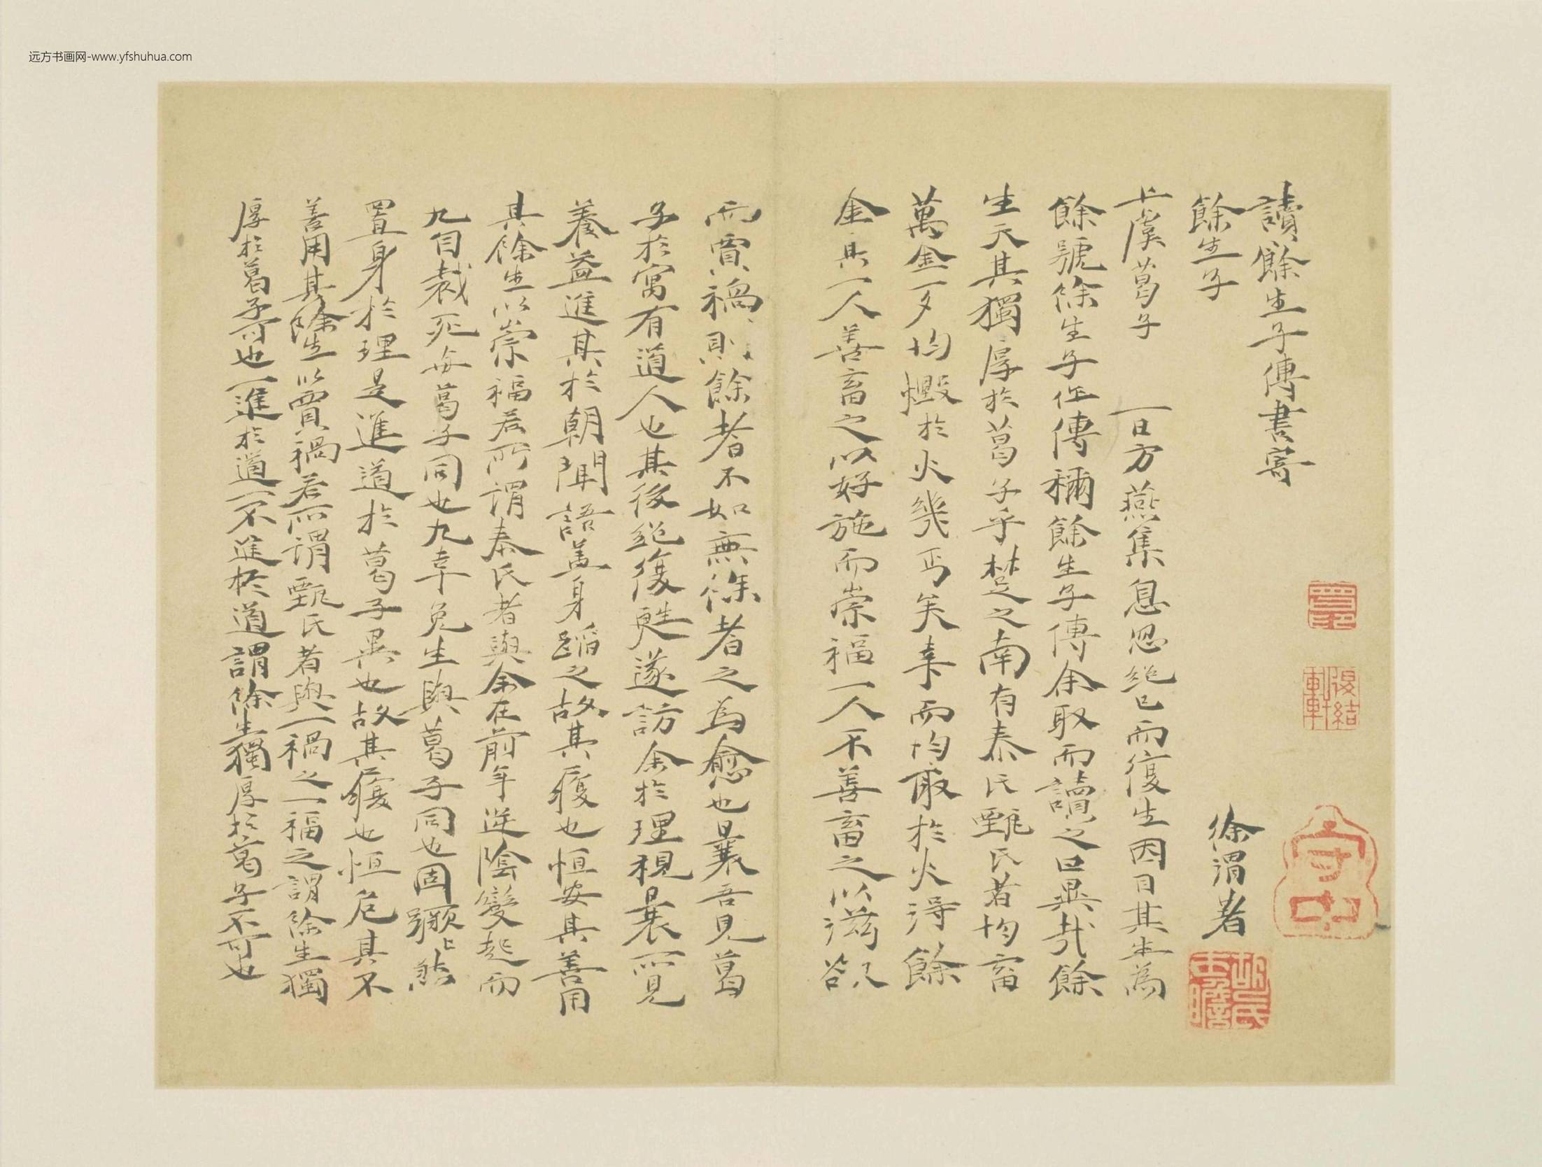 远方书画网-www.yfshuhua.com
讀餘生子傳書寄
餘生子
徐渭著
上虞葛子一日方燕集息忽絕已而復生因目其生為
餘號餘生子作傳稱餘生子傳余取而讀之曰異哉餘
生天其獨厚於葛子乎楚之南有秦氏甄氏者均畜
萬金一夕均燬於火幾丐矣幸而均取於火得餘
金具一人善畜之以好施而崇福一人不善畜之以滋欲
而賈禍則餘者不如無餘者之為愈也曩吾見葛
子於寓有道人也其後絕復甦遂訪余於理視曩所見
養益進其於朝聞語蓋身蹈之故其癁也恒安其善用
其餘生以崇福若所謂秦氏者與余在前年逆陰變起而
九自裁死與葛子同也九幸免生與葛子同也固蹶蹶然
置身於理是進道於葛子異也故其癁也恒危其不
善用其餘生以賈禍若所謂甄氏者與一禍之一福之謂餘生獨
厚於葛子可也一進於道一不進於道謂餘生獨厚於葛子不可也
守中